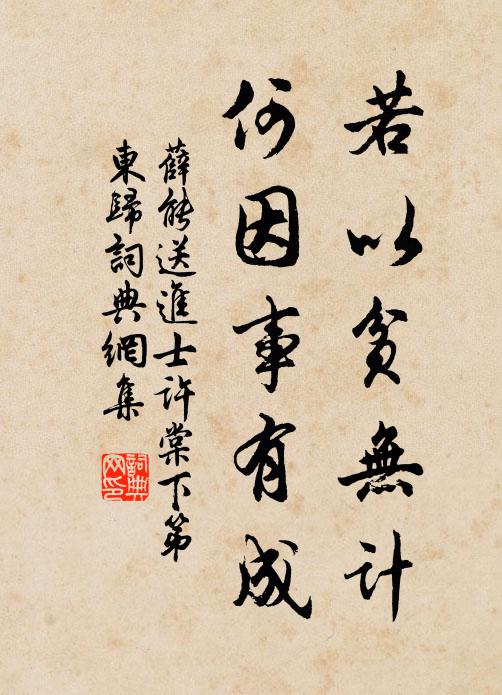 若以貧無計
何因事有成
薛能送進士許棠下第
東歸詞典網集
詞典
网印